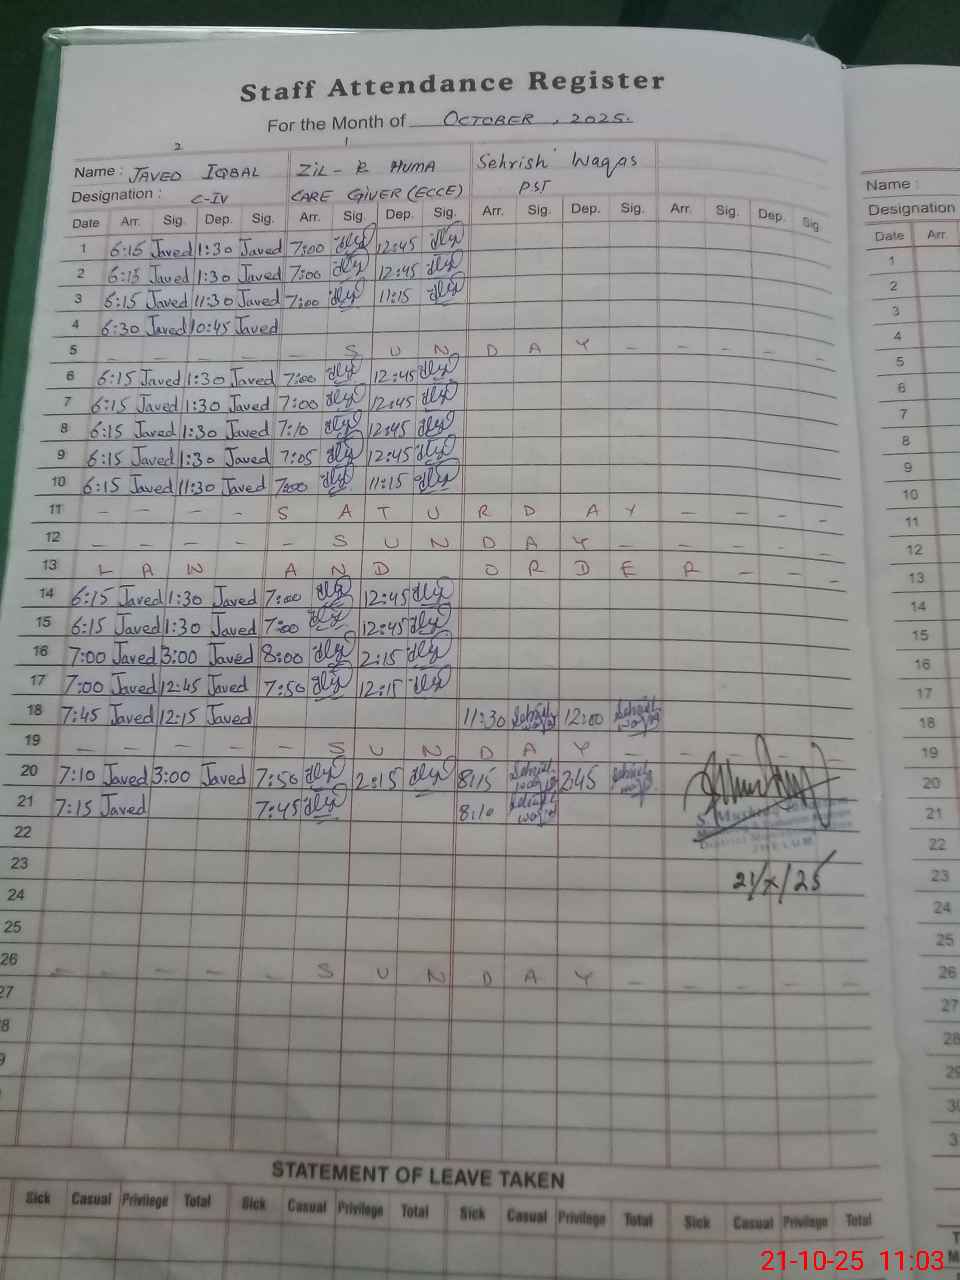 Staff Attendance Register
For the Month of OCTOBER, 2025.
2 1
Name : JAVED IQBAL ZIL-E HUMA Sehrish Waqas
Designation : C-IV CARE GIVER (ECCE) PST
Date Arr. Sig. Dep. Sig. Arr. Sig. Dep. Sig. Arr. Sig. Dep. Sig. Arr. Sig. Dep. Sig
1 6:15 Javed 1:30 Javed 7:00 12:45
2 6:15 Javed 1:30 Javed 7:00 12:45
3 6:15 Javed 11:30 Javed 7:00 11:15
4 6:30 Javed 10:45 Javed
5 – – – – – S U N D A Y – – – – –
6 6:15 Javed 1:30 Javed 7:00 12:45
7 6:15 Javed 1:30 Javed 7:00 12:45
8 6:15 Javed 1:30 Javed 7:10 12:45
9 6:15 Javed 1:30 Javed 7:05 12:45
10 6:15 Javed 11:30 Javed 7:00 11:15
11 – – – – S A T U R D A Y – – – –
12 – – – – – S U N D A Y – – – – –
13 L A W A N D O R D E R – – –
14 6:15 Javed 1:30 Javed 7:00 12:45
15 6:15 Javed 1:30 Javed 7:00 12:45
16 7:00 Javed 3:00 Javed 8:00 2:15
17 7:00 Javed 12:45 Javed 7:50 12:15
18 7:45 Javed 12:15 Javed 11:30 Sehrish Waqas 12:00 Sehrish Waqas
19 – – – – – S U N D A Y – – – – –
20 7:10 Javed 3:00 Javed 7:50 2:15 8:15 Sehrish Waqas 2:45 Sehrish Waqas
21 7:15 Javed 7:45 8:10 Sehrish Waqas
22
JHELUM
21/X/25
23
24
25
26 – – – – – S U N D A Y – – – – –
27
8
9
STATEMENT OF LEAVE TAKEN
Sick Casual Privilege Total Sick Casual Privilege Total Sick Casual Privilege Total Sick Casual Privilege Total
Name :
Designation
Date Arr.
1
2
3
4
5
6
7
8
9
10
11
12
13
14
15
16
17
18
19
20
21
22
23
24
25
26
27
28
29
30
3
T
M
21-10-25 11:03